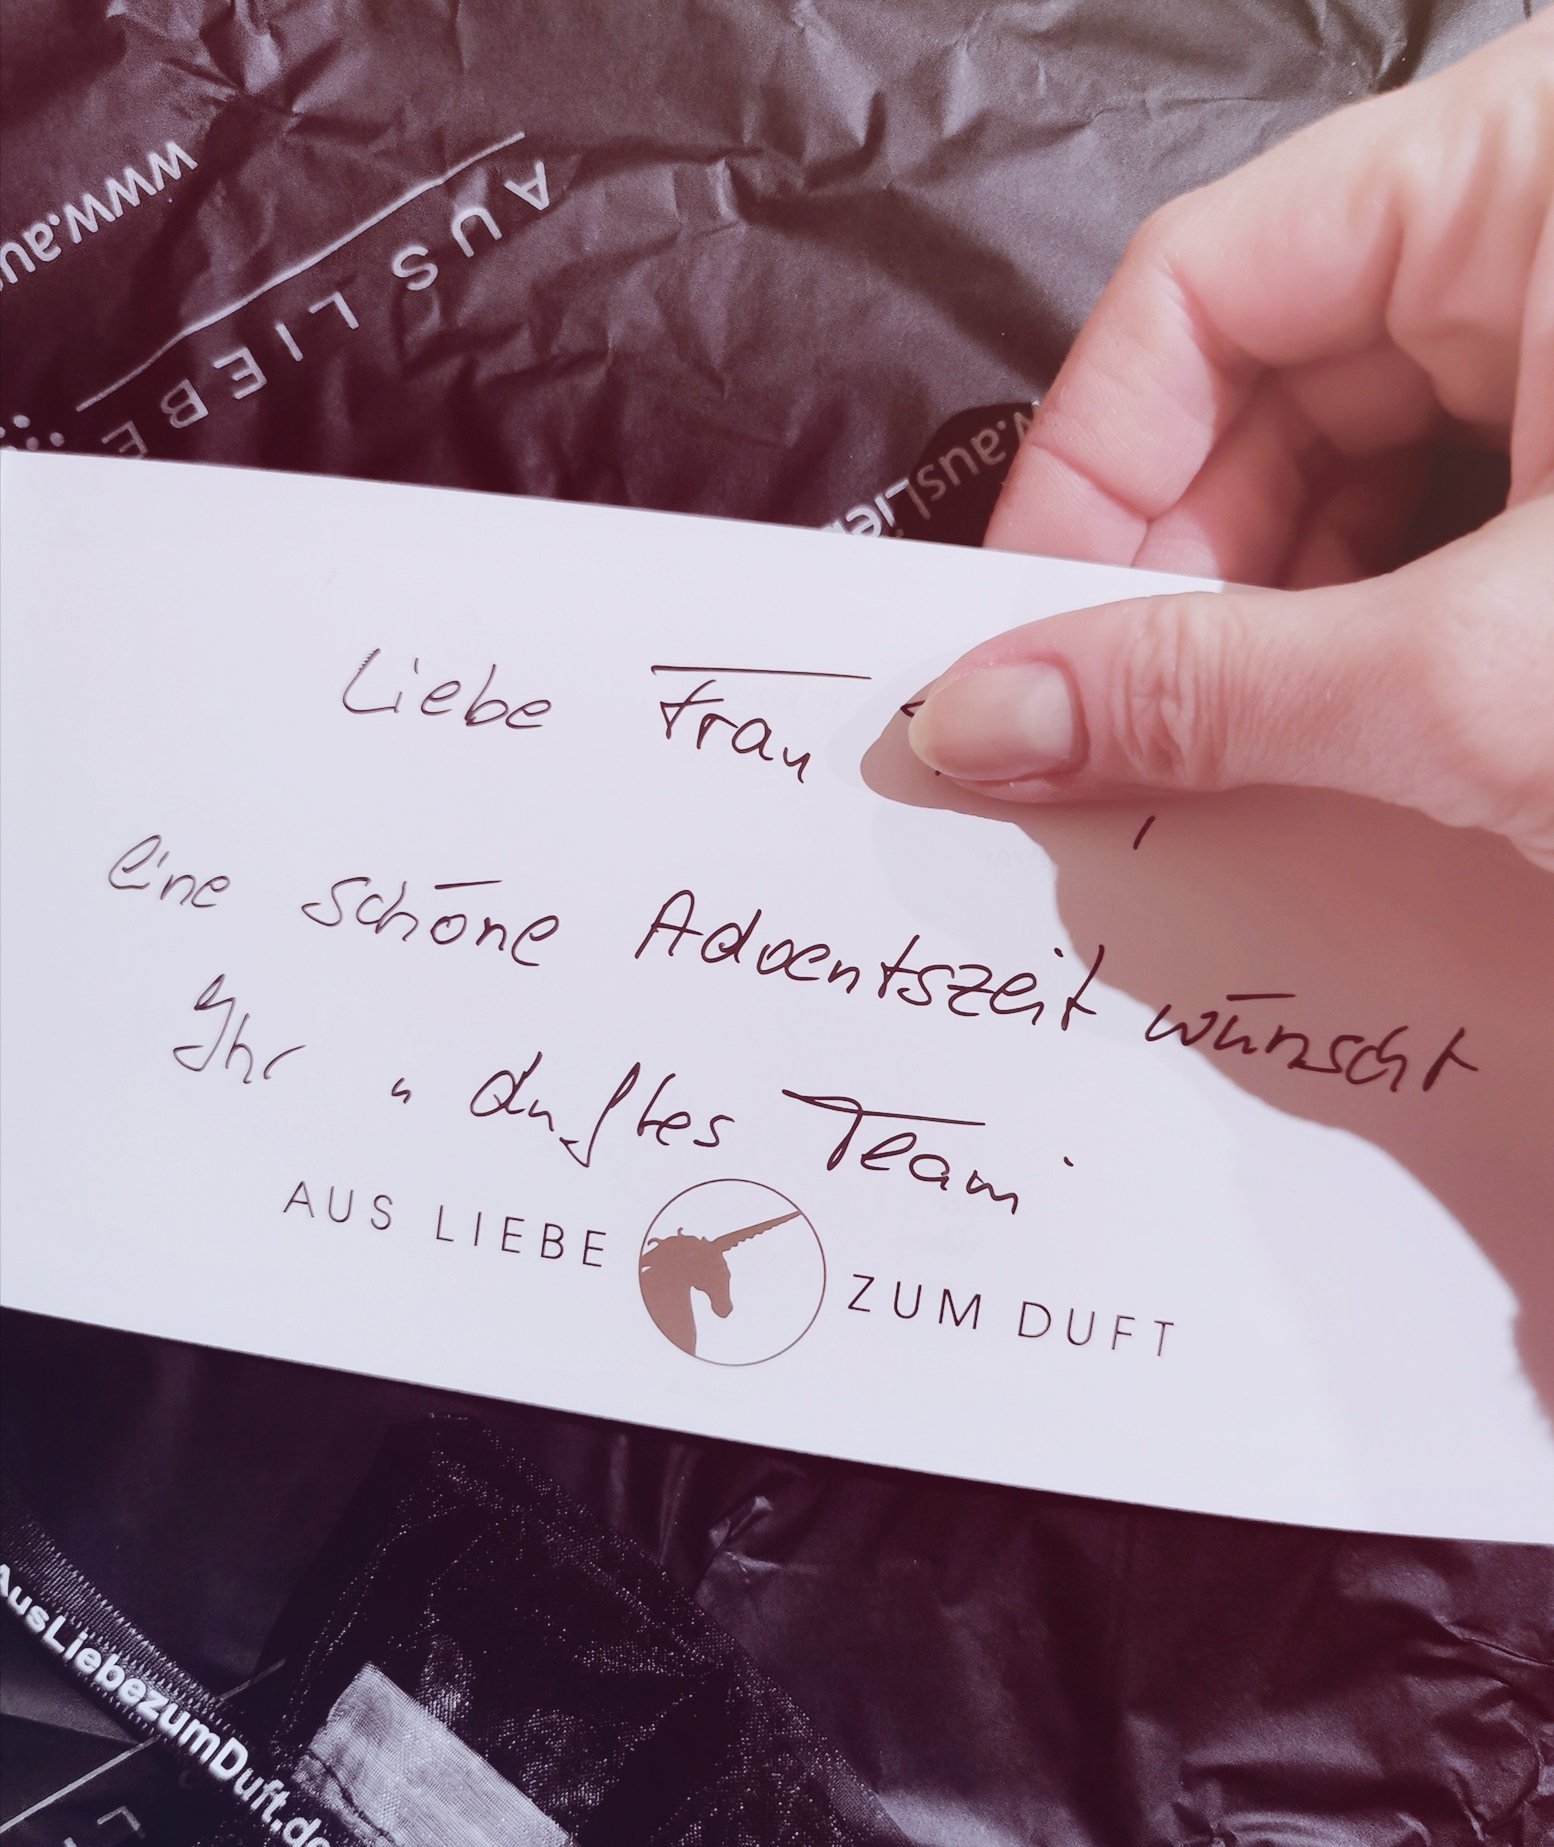 www.aus
AUS LIEBE
w.ausLie
Liebe Frau ,
eine schöne Adventszeit wünscht
Ihr "duftes Team
AUS LIEBE ZUM DUFT
AusLiebezumDuft.de